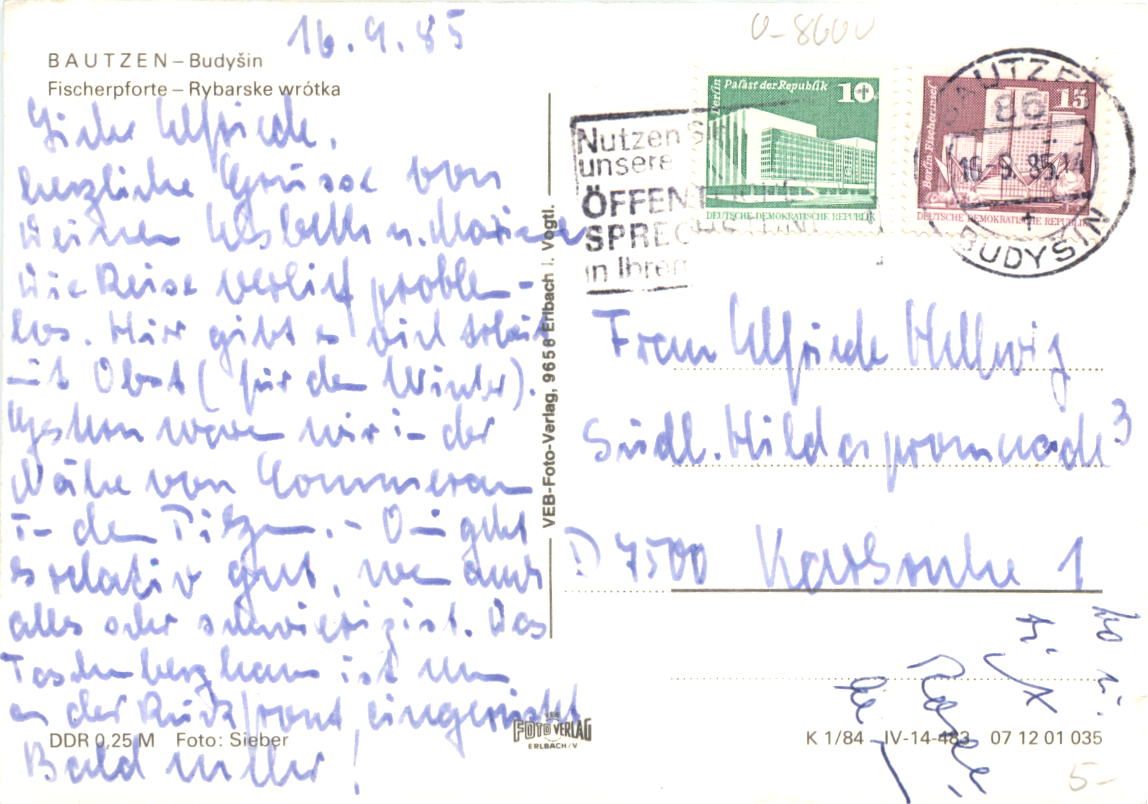 16.9.85
BAUTZEN – Budyšin
Fischerpforte – Rybarske wrótka
Liebe Elfriede,
herzliche Grüsse von
Deinen u.
Die Reise verlief problem-
los. Hier gibt es viel Arbeit
mit Obst (für den Winter).
Gestern waren wir in der
Nähe von Commerau
in den Pilzen. – geht
es relativ gut, wenn auch
alles sehr schwierig ist. Das
Taschenberghaus ist nun
an der Rückfront eingerüstet
Bald mehr!
DDR 0,25 M Foto: Sieber
VEB-Foto-Verlag, 9658 Erlbach i. Vogtl.
FOTO VERLAG
ERLBACH/V
0-8600
Nutzen Sie
unsere
ÖFFENT
SPREC
in Ihrem
Berlin Palast der Republik 10
DEUTSCHE DEMOKRATISCHE REPUBLIK
Berlin-Fischerinsel 15
DEUTSCHE DEMOKRATISCHE REPUBLIK
BAUTZEN
86
16.-9.85.-14
BUDYŠIN
Frau Elfriede Hellwig
Südl. Hildapromenade 3
D 7500 Karlsruhe 1
K 1/84 IV-14-483 07 12 01 035
5-